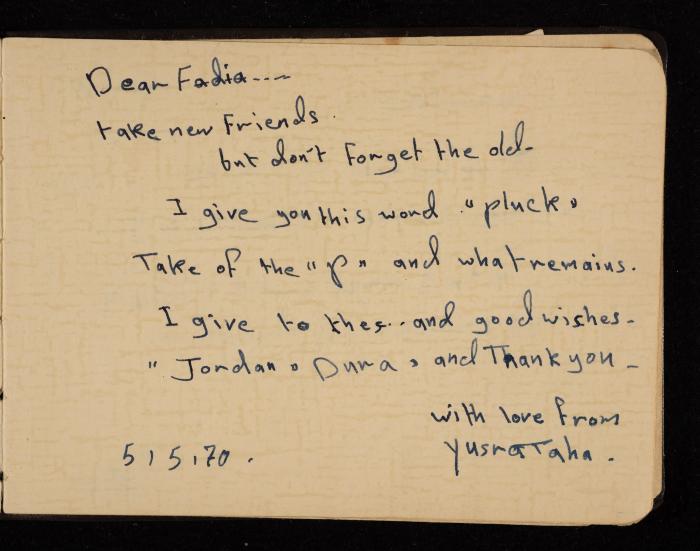 Dear Fadia----
take new Friends.
but don't Forget the old-
I give you this word "pluck"
Take of the "p" and what remains.
I give to thes.. and good wishes-
"Jordan, Dura, and Thank you -
with love from
Yusra Taha.
5,5,70.